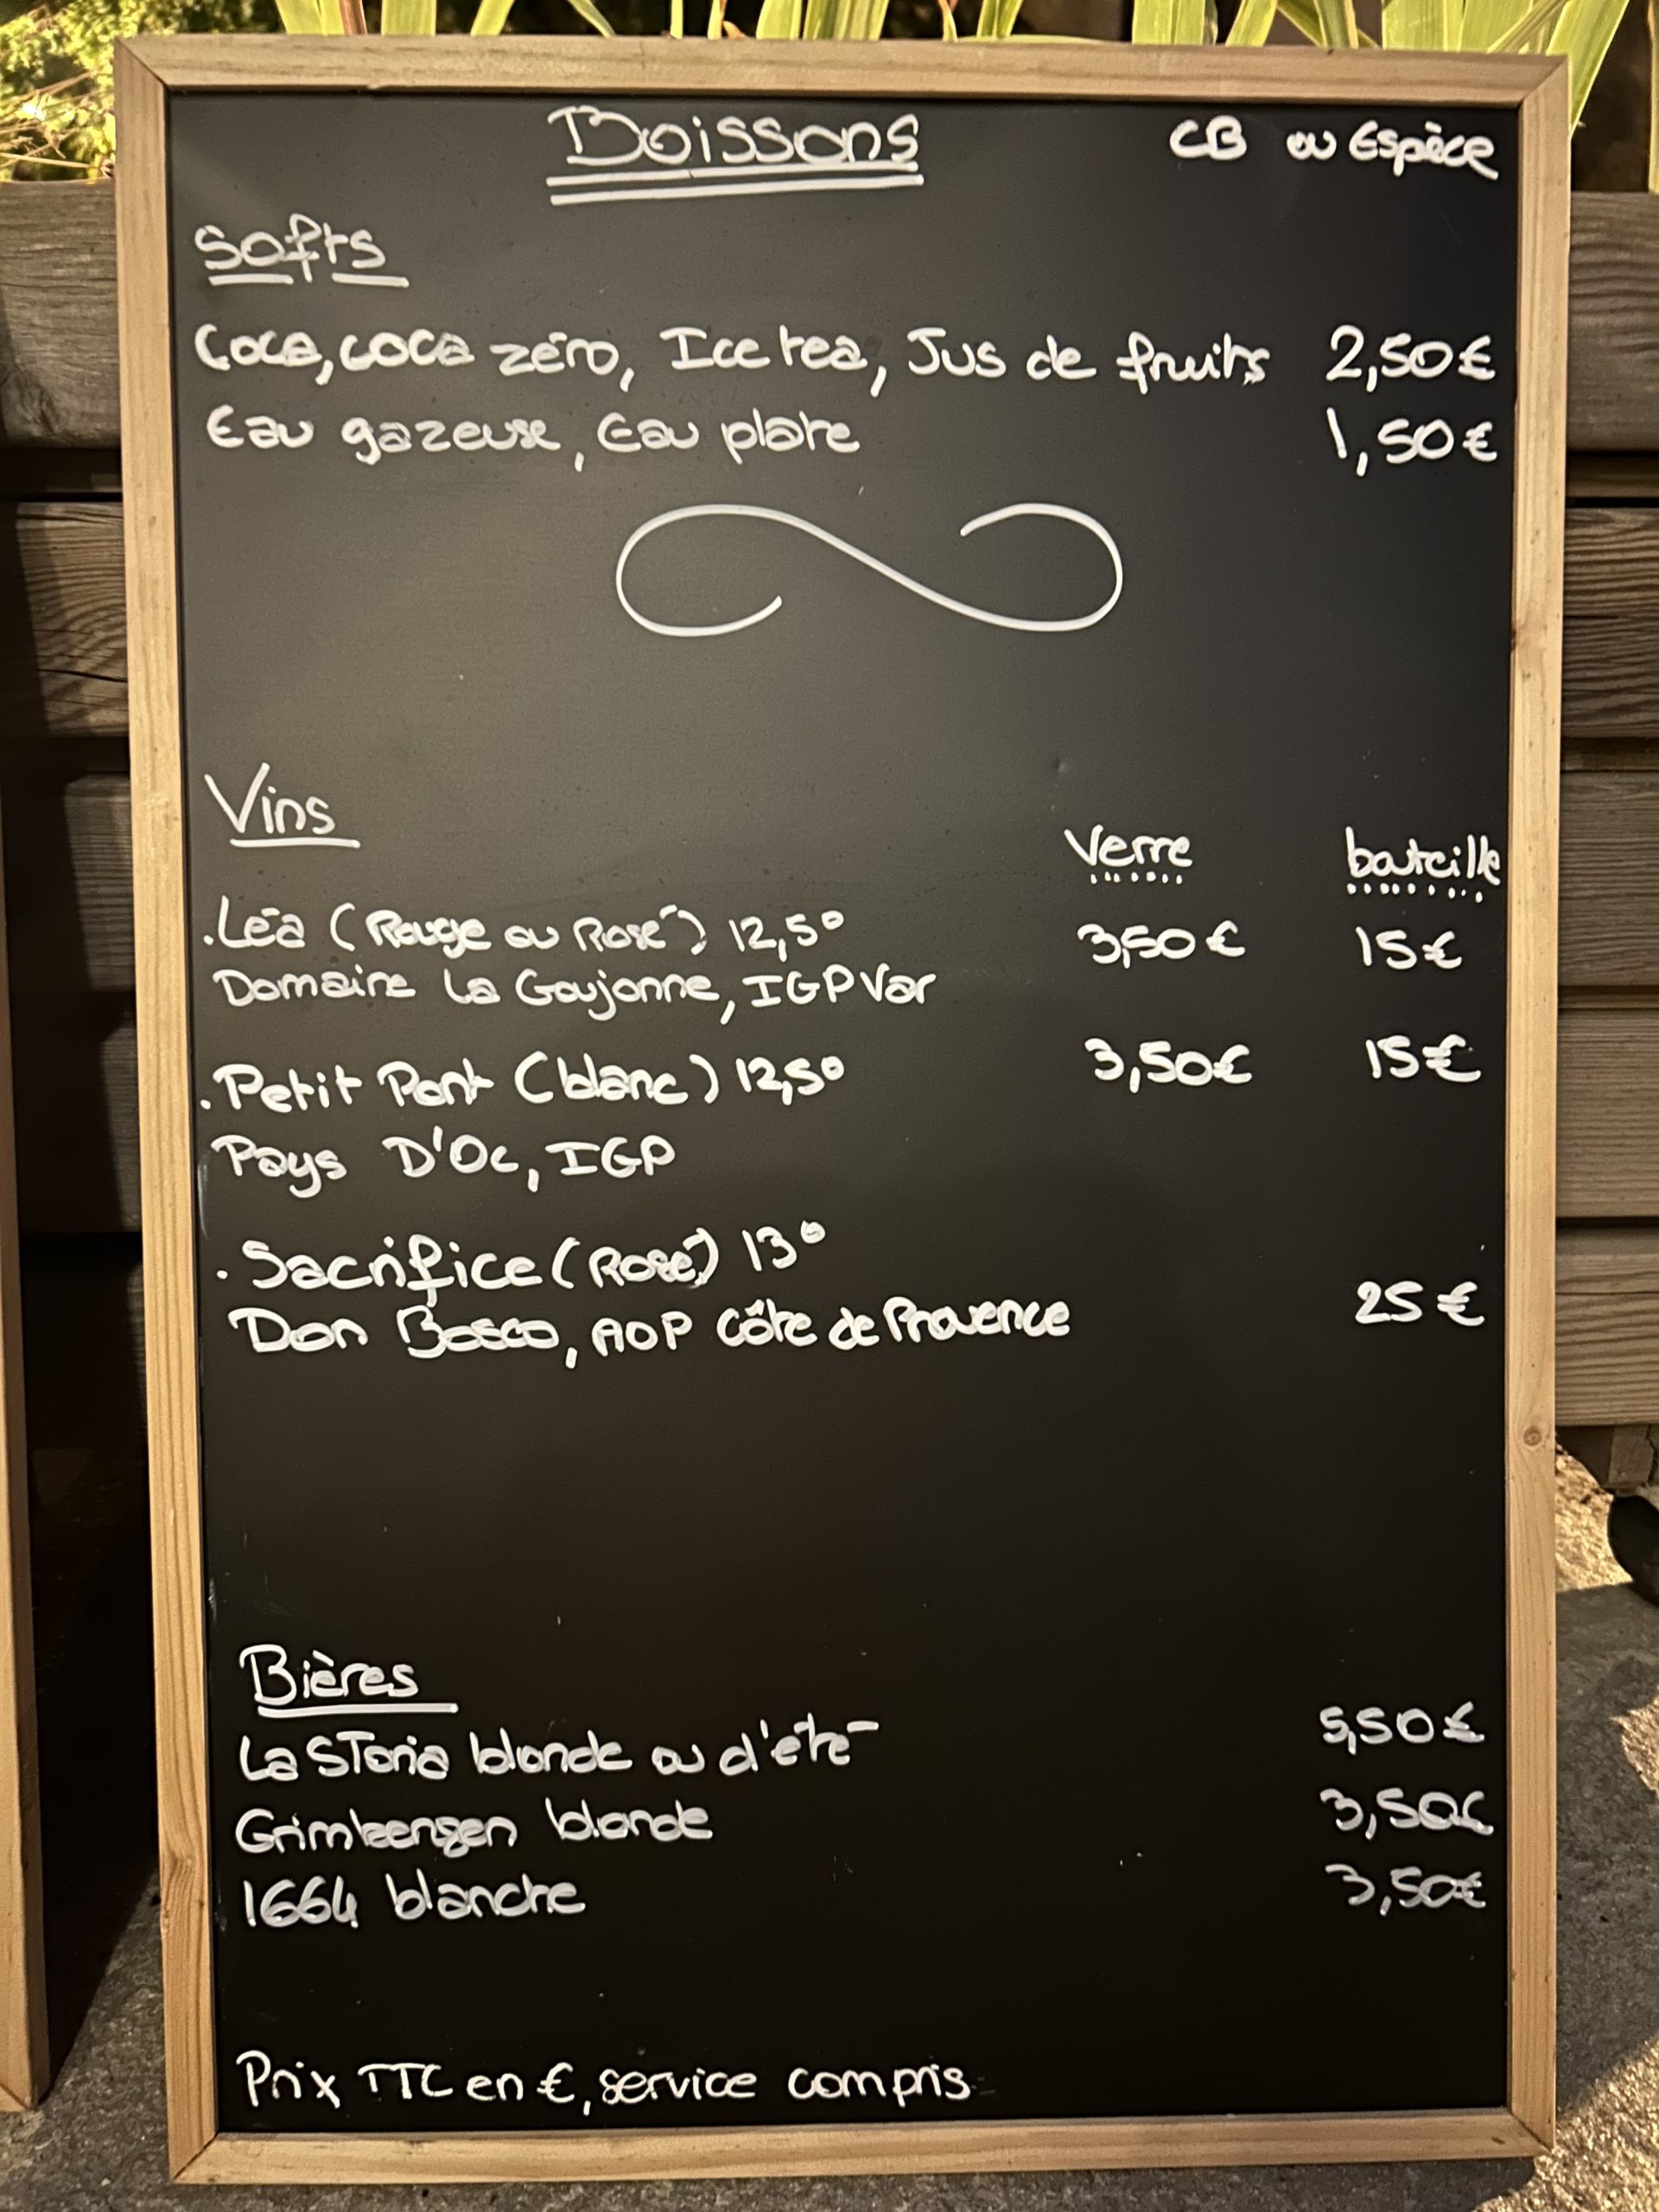 Boissons CB ou Espèce
Softs
Coca, coca zéro, Ice tea, Jus de fruits 2,50€
Eau gazeuse, Eau plate 1,50€
Vins
Verre bouteille
.Léa (Rouge ou Rosé) 12,5° 3,50€ 15€
Domaine La Goujonne, IGP Var
.Petit Pont (blanc) 12,5° 3,50€ 15€
Pays D'Oc, IGP
.Sacrifice (Rosé) 13°
Don Bosco, AOP Côte de Provence 25€
Bières
La SToria blonde ou d'été 5,50€
Grimbergen blonde 3,50€
1664 blanche 3,50€
Prix TTC en €, service compris